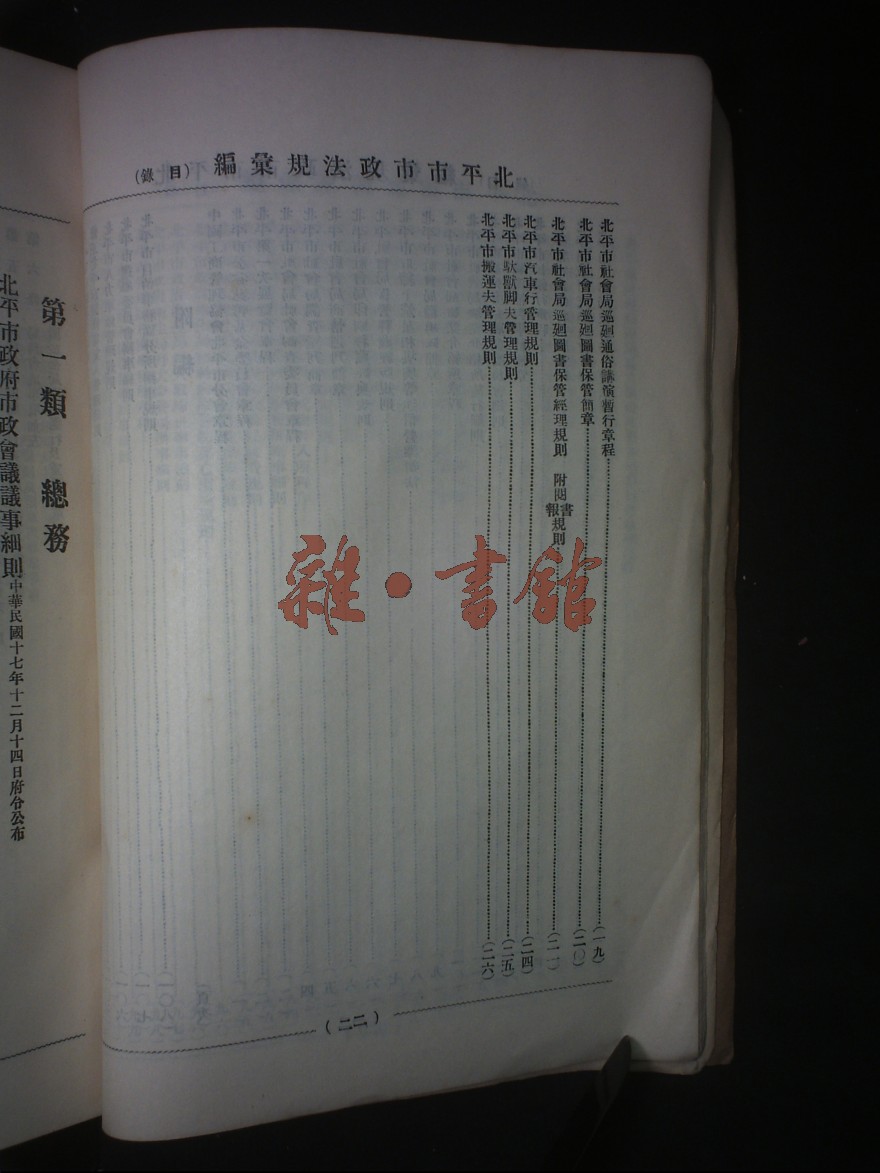 北平市市政法規彙編 (目錄)
北平市社會局巡廻通俗講演暫行章程……(一九)
北平市社會局巡廻圖書保管簡章……(二〇)
北平市社會局巡廻圖書保管經理規則 附閱書報規則……(二一)
北平市汽車行管理規則……(二四)
北平市馱獸脚夫管理規則……(二五)
北平市搬運夫管理規則……(二六)
(二二)
第一類 總務
北平市政府市政會議議事細則 中華民國十七年十二月十四日府令公布
雜·書館